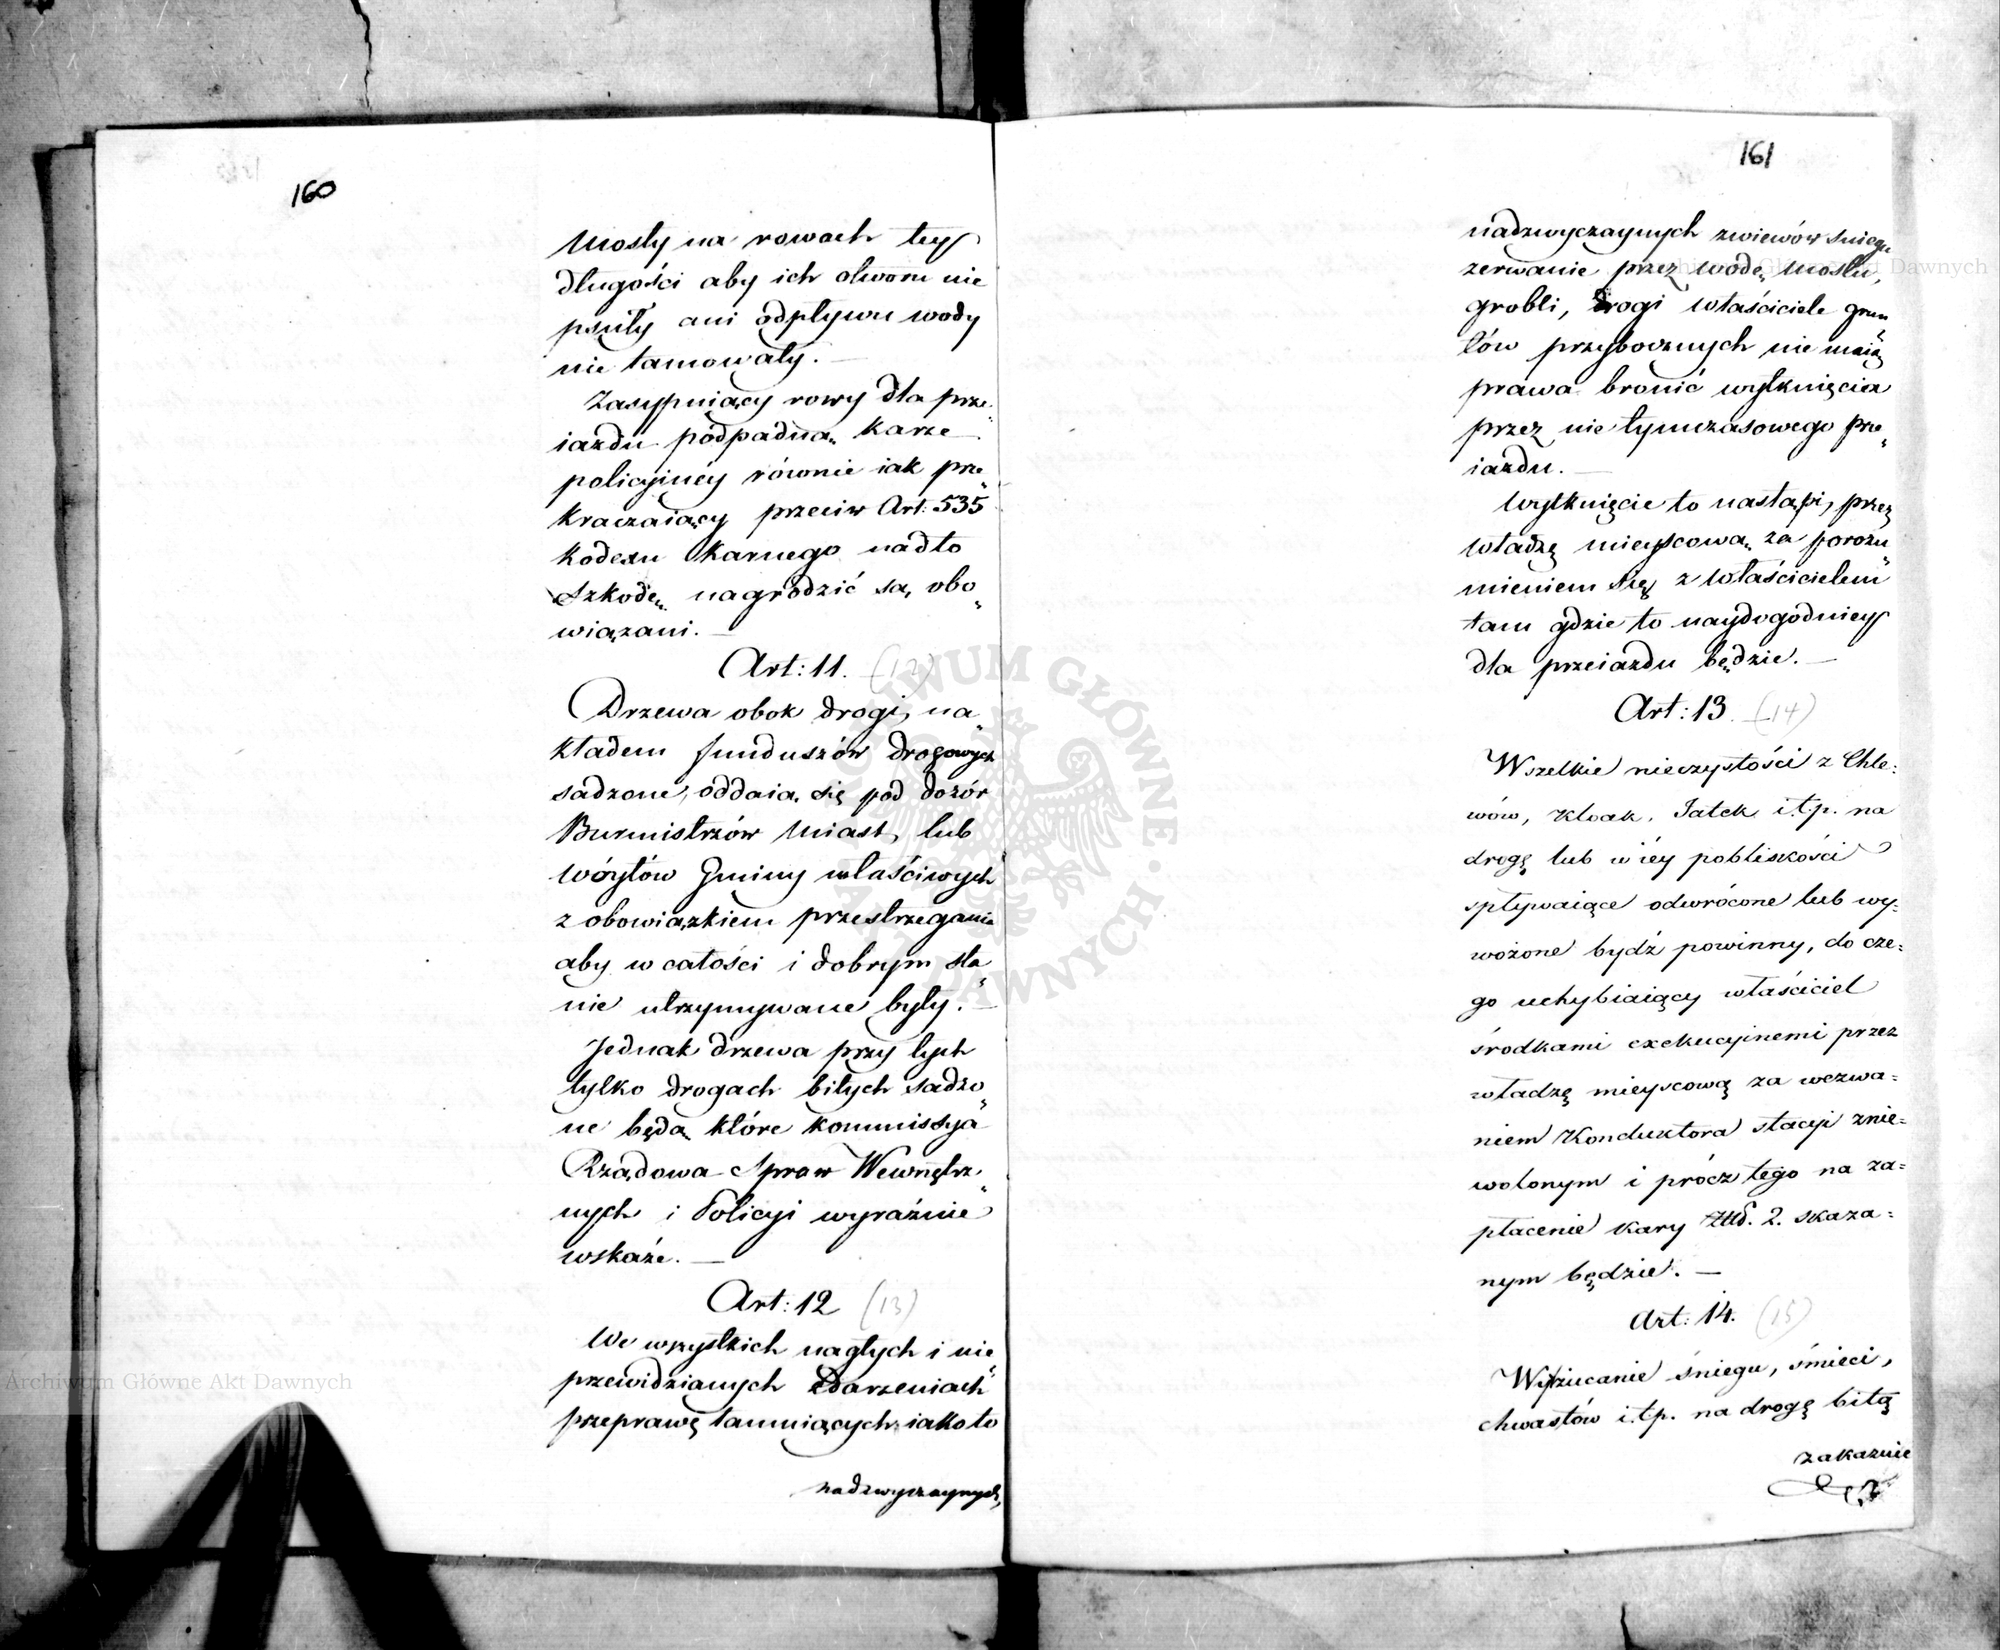 160
mosty na rowach tey
długości aby ich otworu nie
psuły ani odpływu wody
nie tamowały. —
Zasypuiący rowy dla prze„
iazdu podpadną karze
policyjnéy równie iak prze„
kraczaiący przeciw Art: 535
kodexu Karnego nadto
szkodę nagrodzić są obo„
wiązani. —
Art: 11. (12)
Drzewa obok drogi, na„
kładem funduszów drogowych
sadzone, oddaią się pod dozór
Burmistrzów Miast, lub
wóytów Gminy właściwych
z obowiązkiem przestrzegania
aby w całości i dobrym sta„
nie utrzymywane były. —
Jednak drzewa przy tych
tylko drogach bitych sadzo„
ne będą które Kommissya
Rządowa Spraw Wewnętrz„
nych i Policyi wyraźnie
wskaże. —
Art: 12 (13)
We wszystkich nagłych i nie„
przewidzianych zdarzeniach
przeprawę tamuiących iako to
nadzwyczaynych,
161
nadzwyczaynych zwiewów sniegu
zerwanie przez wodę mostu,
grobli, drogi właściciele grun„
tów przybocznych nie maią
prawa bronić wytknięcia
przez nie tymczasowego prze„
iazdu. —
Wytknięcie to nastąpi, przez
władzę mieyscową za porozu„
mieniem się z właścicielem
tam gdzie to naydogodniey
dla przeiazdu będzie. —
Art: 13 (14)
Wszelkie nieczystości z Chle=
wów, Kloak, Jatek i.t.p. na
drogę lub w iéy pobliskości
spływaiące odwrócone lub wy=
wożone bydź powinny, do cze=
go uchybiaiący właściciel
środkami exekucyinemi przez
władzę mieyscową za wezwa=
niem Konduktora stacyi znie=
wolonym i prócz tego na za=
płacenie kary Złł. 2. skaza=
nym będzie. —
Art: 14. (15)
Wyrzucanie śniegu, śmieci,
chwastów i.t.p. na drogę bitą
zakazuie
Archiwum Główne Akt Dawnych
Archiwum Główne Akt Dawnych
ARCHIWUM GŁÓWNE AKT DAWNYCH